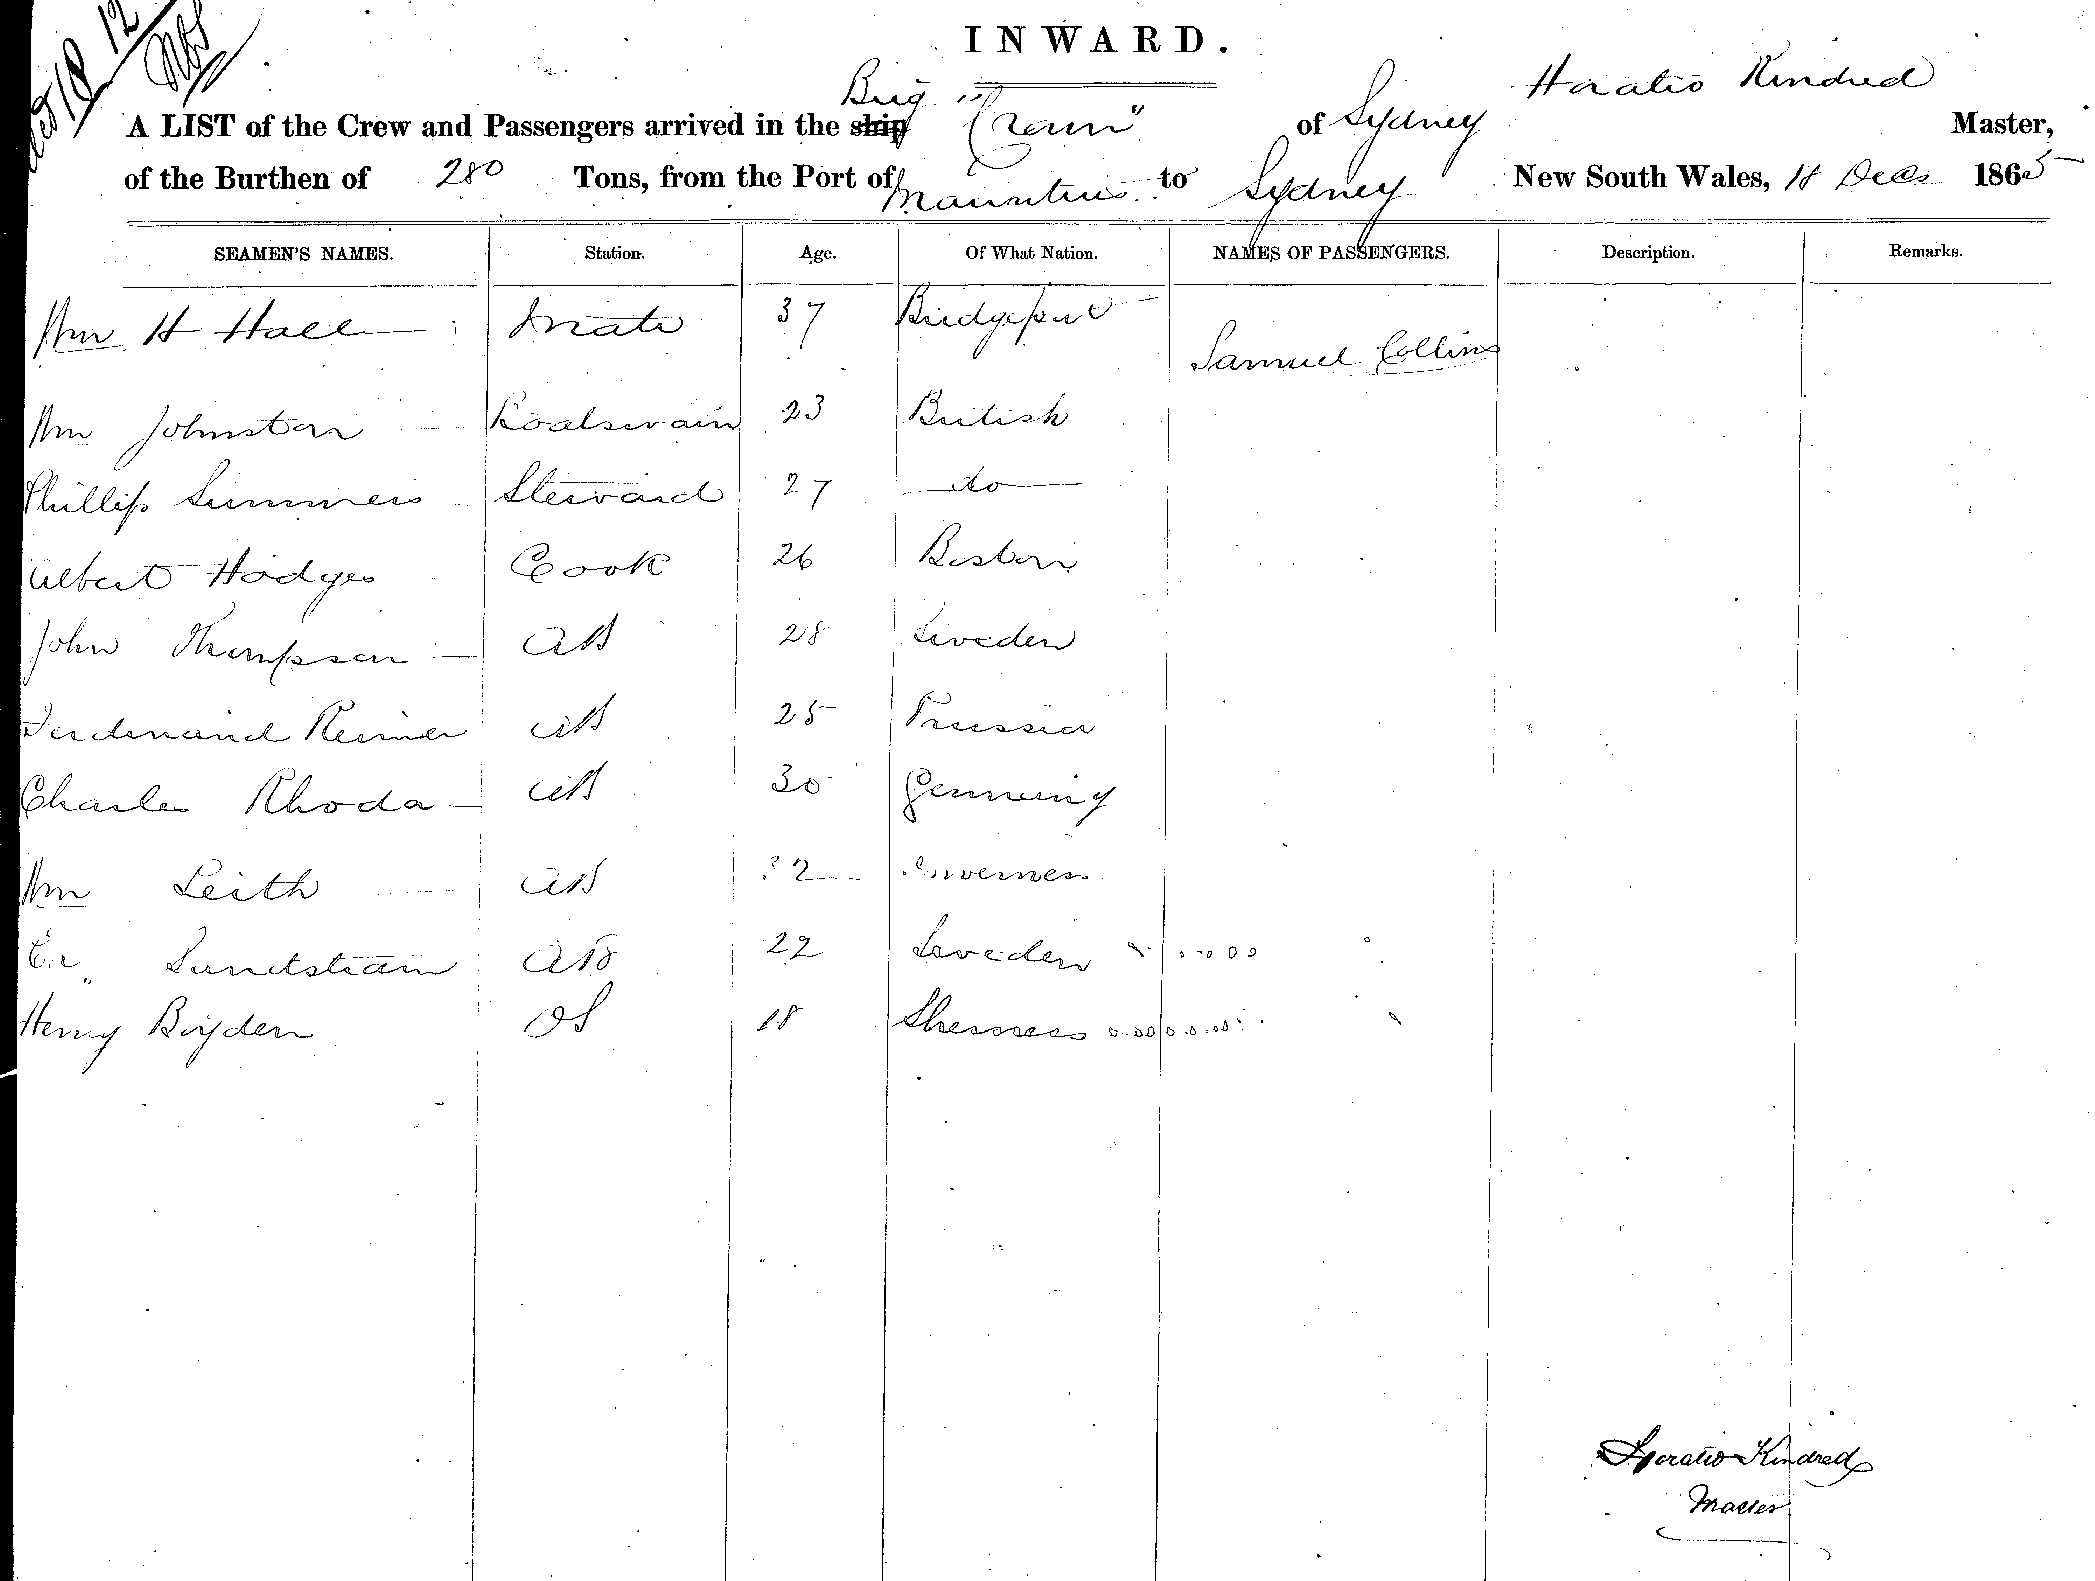 18 12
INWARD.
Horatio Kindred
Brig
A LIST of the Crew and Passengers arrived in the ship of Sydney Master,
of the Burthen of 280 Tons, from the Port of Mauritius to Sydney New South Wales, 18 Decr 1865
SEAMEN'S NAMES. Station. Age. Of What Nation. NAMES OF PASSENGERS. Description. Remarks.
Wm H Hall Mate 37 Bridgeport
Samuel Collins
Wm Johnston Boatswain 23 British
Phillip Summers Steward 27 do
Albert Hodges Cook 26 Boston
John Thompson AB 28 Sweden
Ferdinand Reimer AB 25 Prussia
Charles Rhoda AB 30 Germany
Wm Leith AB 32 Inverness
Lundstram AB 22 Sweden
Henry Boyden OS 18 Sheerness
Horatio Kindred
Master